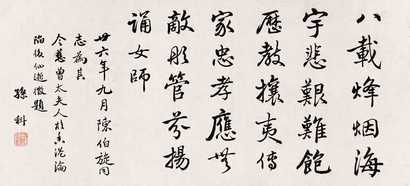 八載烽烟海
宇悲艱難飽
歷教攘夷傳
家忠孝應無
敵彤管芬揚
誦女師
卅六年九月陳伯旋同
志為其
令慈曾太夫人於香港淪
陷後仙遊徵題
孫科